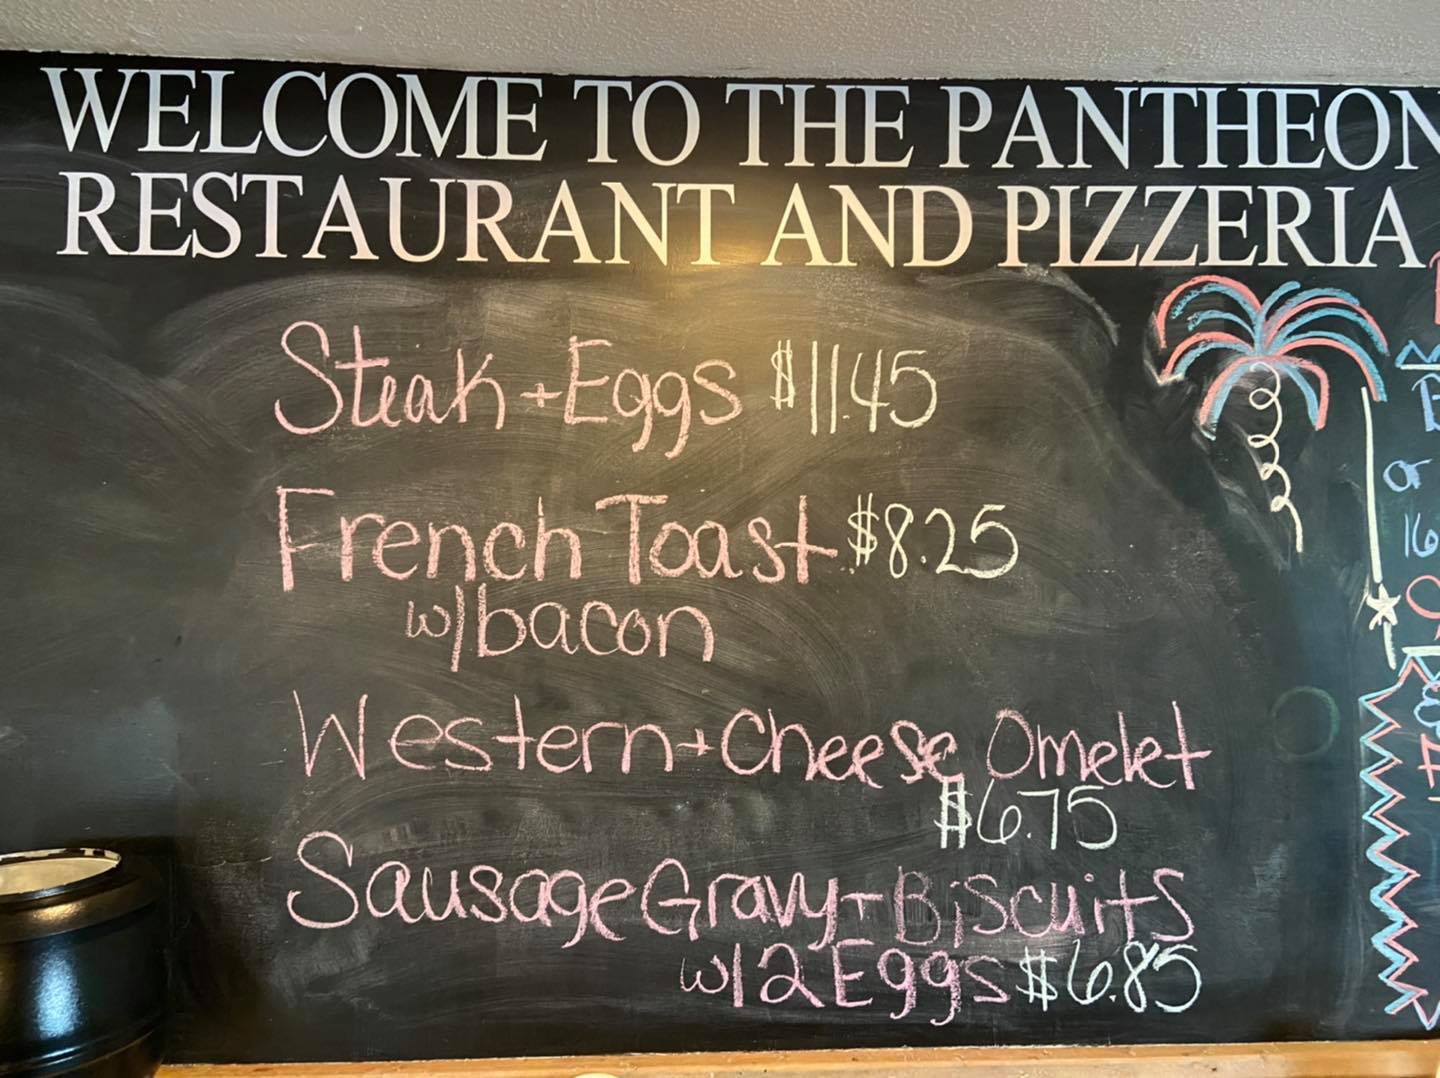 WELCOME TO THE PANTHEON
RESTAURANT AND PIZZERIA
Steak + Eggs $11.45
French Toast $8.25
w/bacon
Western + Cheese Omelet
$6.75
Sausage Gravy + Biscuits
w/2 Eggs $6.85
or
16